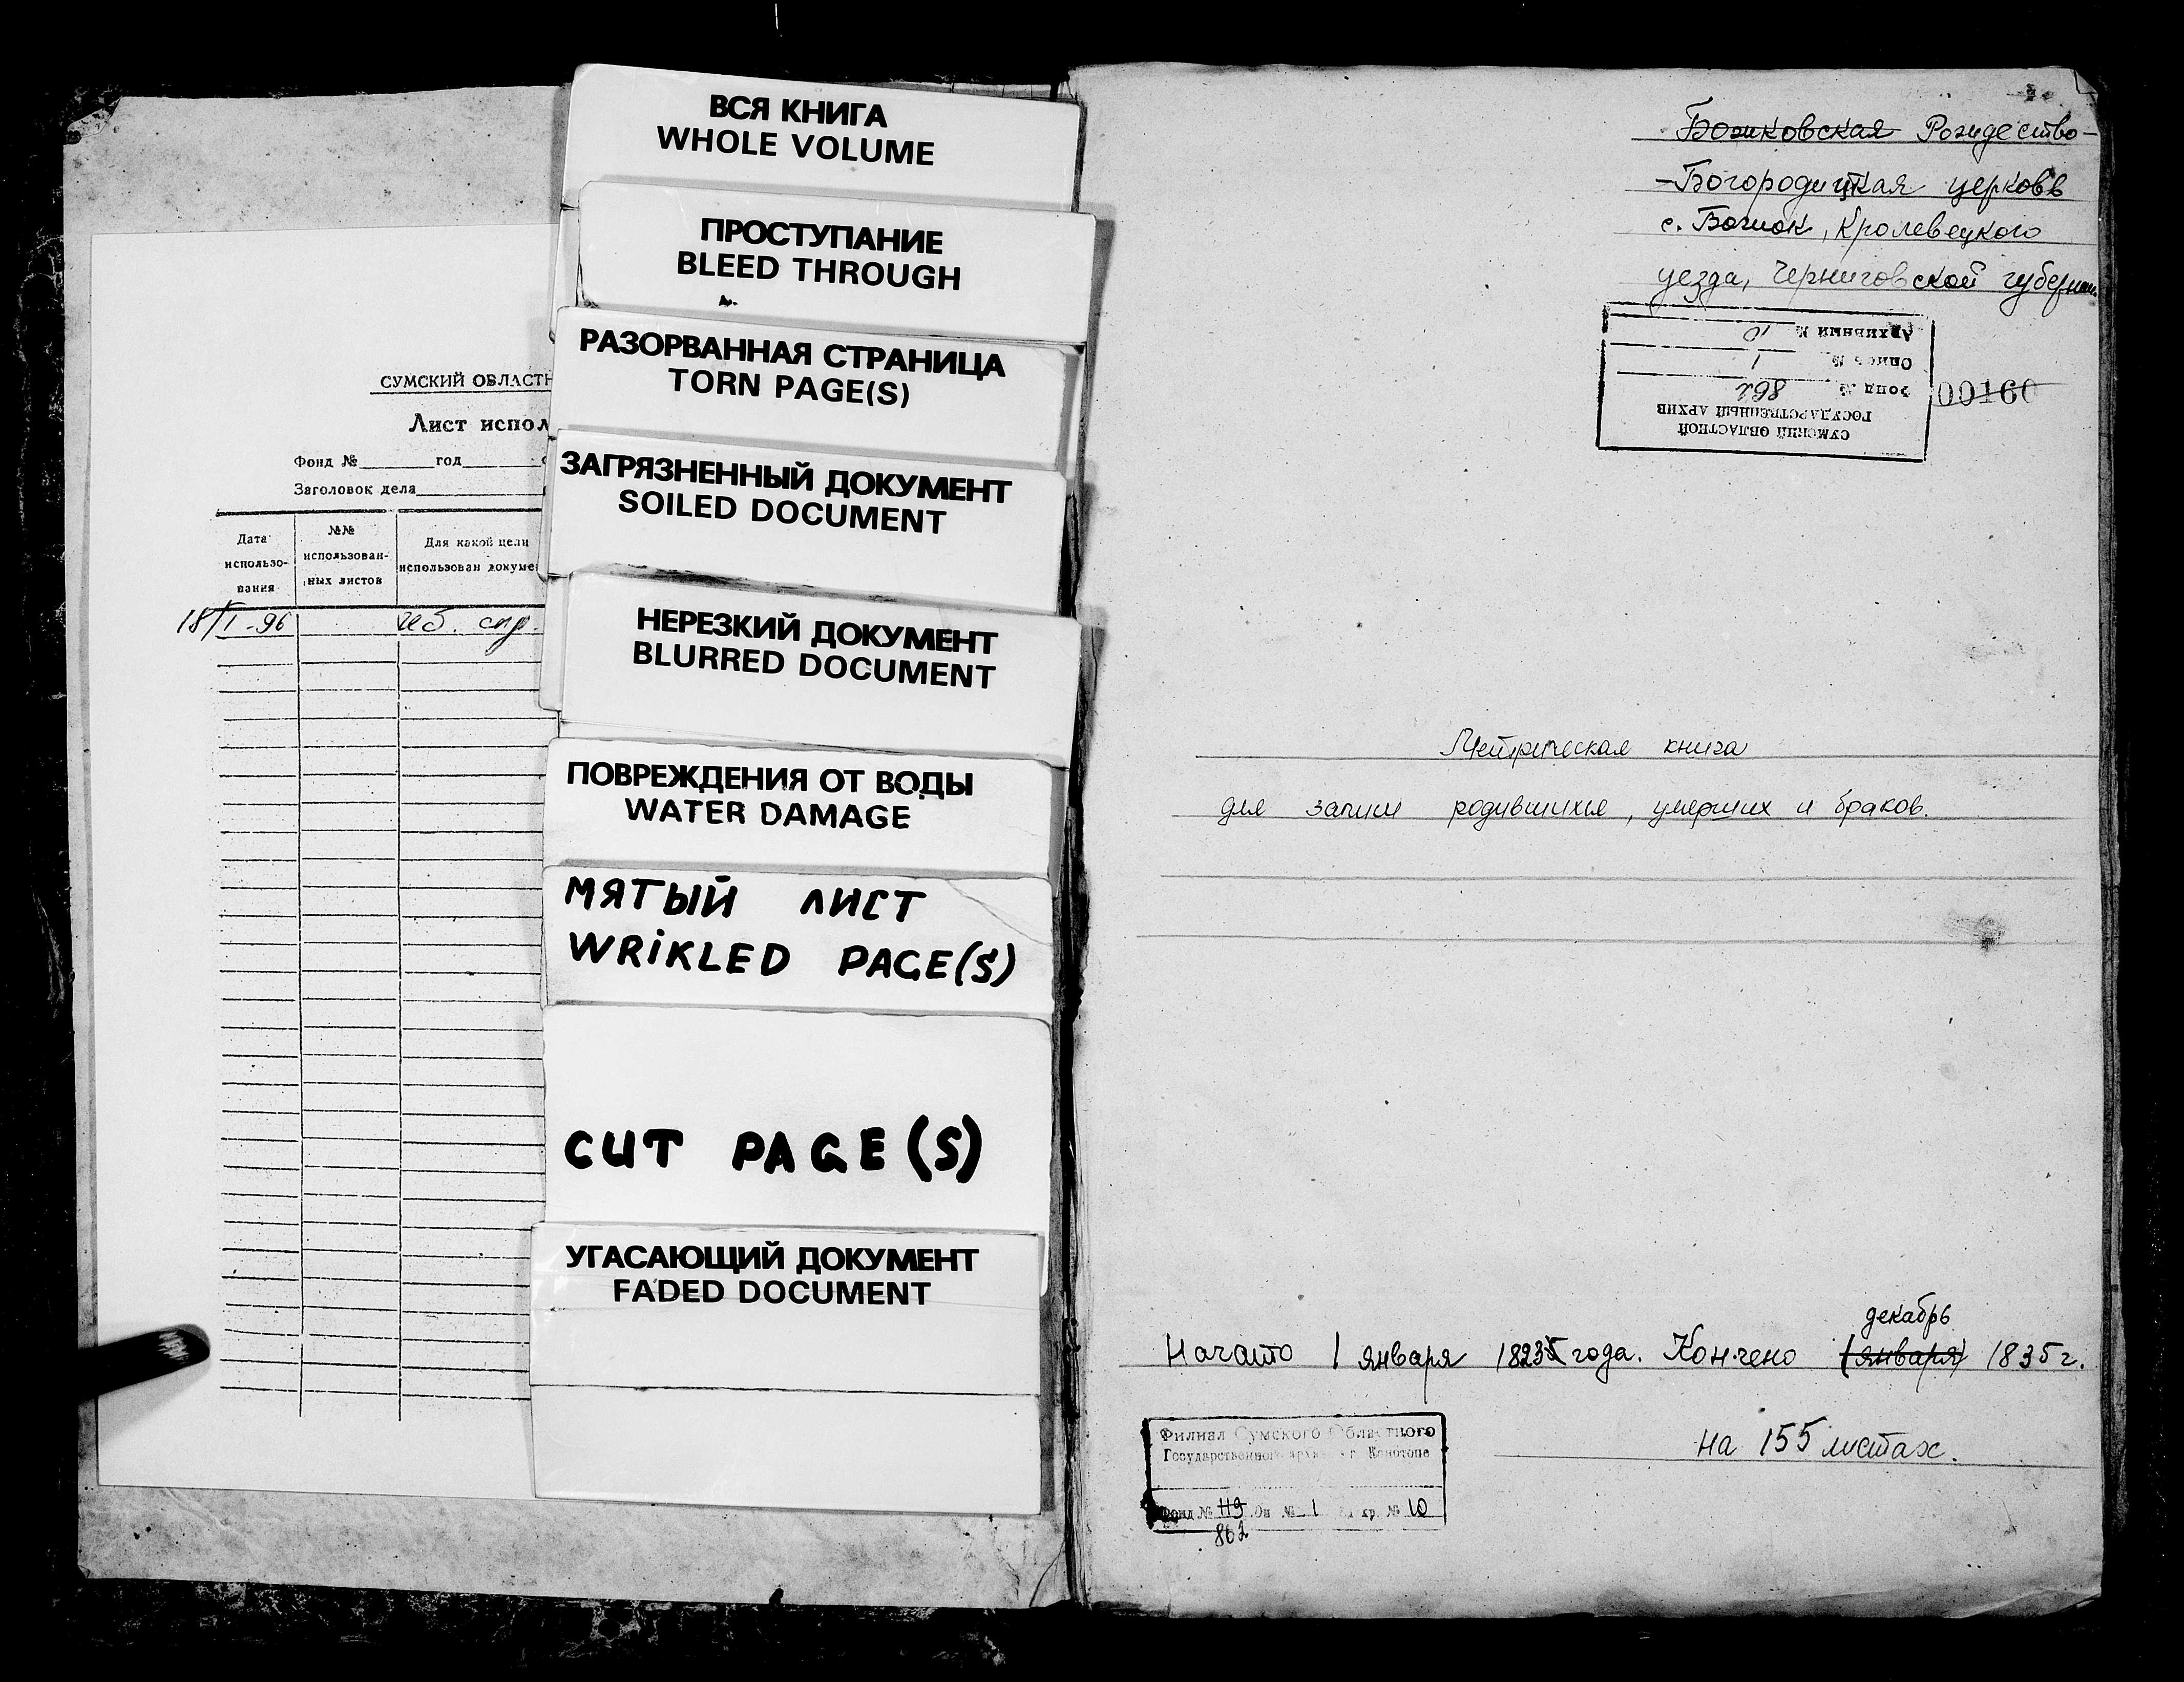 СУМСКИЙ ОБЛАСТН
Лист испол
Фонд № год
Заголовок дела
Дата использо-вания
№№ использован-ных листов
Для какой цели использован докуме
18/I-96
ВСЯ КНИГА
WHOLE VOLUME
ПРОСТУПАНИЕ
BLEED THROUGH
РАЗОРВАННАЯ СТРАНИЦА
TORN PAGE(S)
ЗАГРЯЗНЕННЫЙ ДОКУМЕНТ
SOILED DOCUMENT
НЕРЕЗКИЙ ДОКУМЕНТ
BLURRED DOCUMENT
ПОВРЕЖДЕНИЯ ОТ ВОДЫ
WATER DAMAGE
МЯТЫЙ ЛИСТ
WRIKLED PAGE(S)
CUT PAGE(S)
УГАСАЮЩИЙ ДОКУМЕНТ
FADED DOCUMENT
Божковская Рождество-
-Богородицкая церковь
с. Божок, Кролевецкого
уезда, Черниговской губернии
СУМСКИЙ ОБЛАСТНОЙ
ГОСУДАРСТВЕННЫЙ АРХИВ
Фонд № 862
Опись № 1
Архивный № 10
00160
Метрическая книга
для записи родившихся, умерших и браков.
декабрь
Начато 1 января 1835 года. Кончено (января) 1835 г.
на 155 листах.
Филиал Сумского Областного
Государственного архива г. Конотопе
Фонд № 119 Оп № 1 Ед. хр. № 10
862